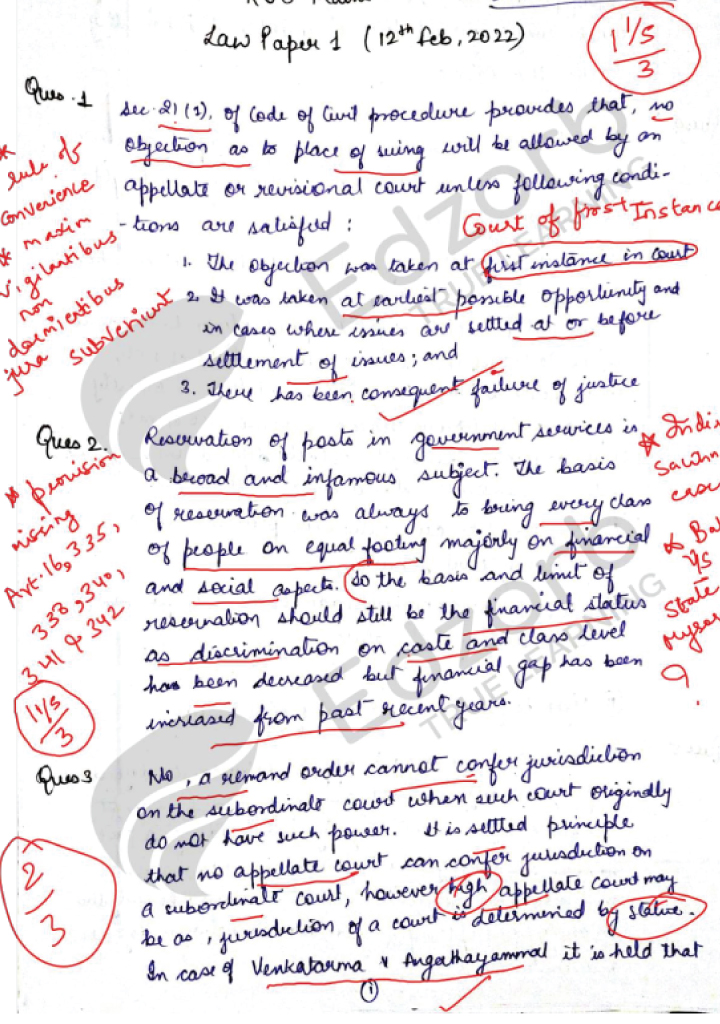 Law Paper 1 (12th Feb, 2022)
1 1/5
3
Ques.1
Sec. 21 (1), of Code of Civil procedure provides that, no
objection as to place of suing will be allowed by an
appellate or revisional court unless following condi-
-tions are satisfied :
Court of first Instance
1. The objection was taken at first instance in court
2. It was taken at earliest possible opportunity and
in cases where issues are settled at or before
settlement of issues; and
3. There has been consequent failure of justice
* rule of
convenience
* maxim
vigilantibus
non
dormientibus
jura subveniunt
Ques 2.
Reservation of posts in government services is
a broad and infamous subject. The basis
of reservation was always to bring every class
of people on equal footing majorly on financial
and social aspects. So the basis and limit of
reservation should still be the financial status
as discrimination on caste and class level
has been decreased but financial gap has been
increased from past recent years.
* provision
missing
Art. 16, 335,
338, 340,
341 & 342
1 1/5
3
* Indi
Sawhn
case
* Ba
v/s
State
Mysor
Ques 3
No, a remand order cannot confer jurisdiction
on the subordinate court when such court originally
do not have such power. It is settled principle
that no appellate court can confer jurisdiction on
a subordinate court, however high appellate court may
be as, jurisdiction of a court is determined by statue.
In case of Venkatarma v Angathayammal it is held that
2
3
1
Edzorb
TRUE LEARNING
Edzorb
TRUE LEARNING